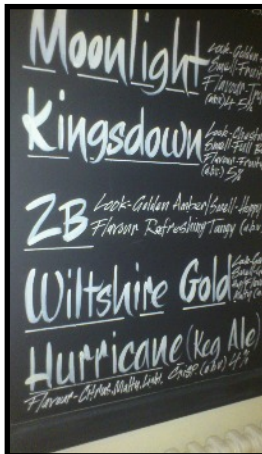 Moonlight
Look-Golden
Small-Fruit
Flavour-
Kingsdown
Small-Full
Flavour-Fruity
(abv) 5%
2B
Look-Golden Amber/Small-Hoppy
Flavour Refreshing Tangy (abv
Wiltshire Gold
Hurricane (Keg Ale)
Flavour-Citrus, Malty, Light, Crisp (abv) 4%